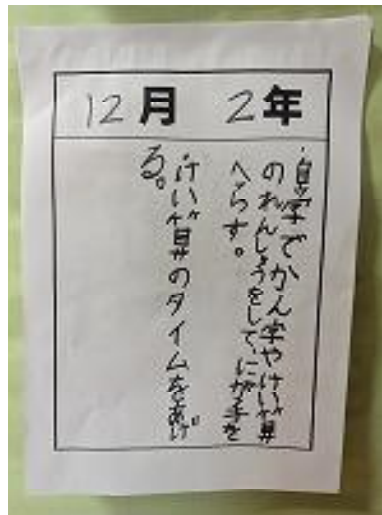 12月 2年
・自学でかん字やけい算
のれんしゅうをして、にが手を
へらす。
・けい算のタイムをあげ
る。